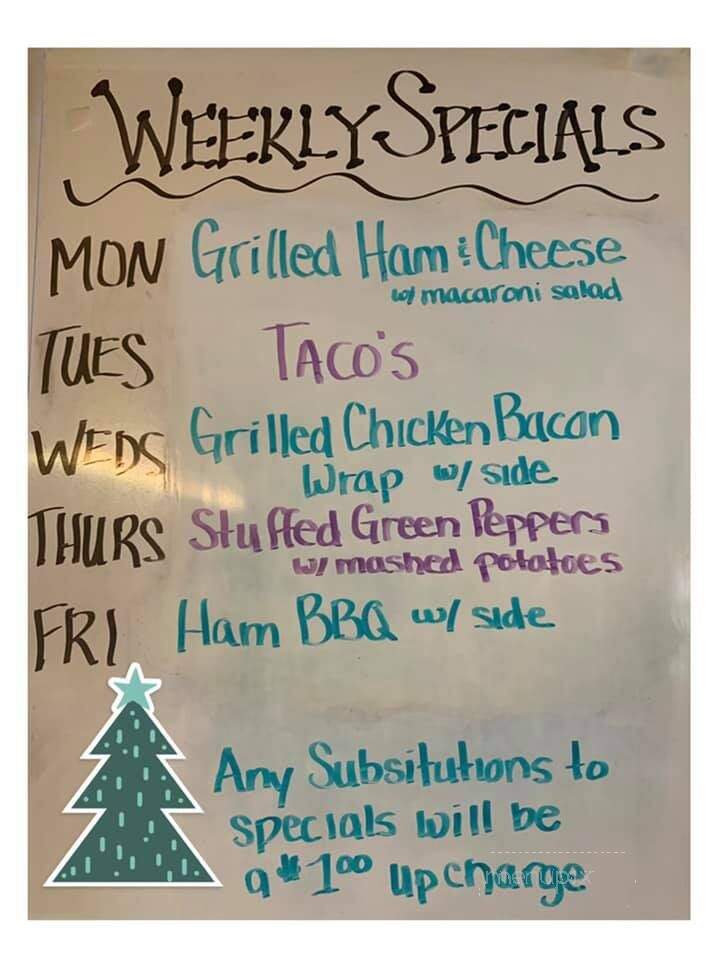 WEEKLY SPECIALS
MON Grilled Ham & Cheese
w/ macaroni salad
TUES TACO'S
WEDS Grilled Chicken Bacon
Wrap w/ side
THURS Stuffed Green Peppers
w/ mashed potatoes
FRI Ham BBQ w/ side
Any Subsitutions to
specials will be
a $1.00 up charge
menupix